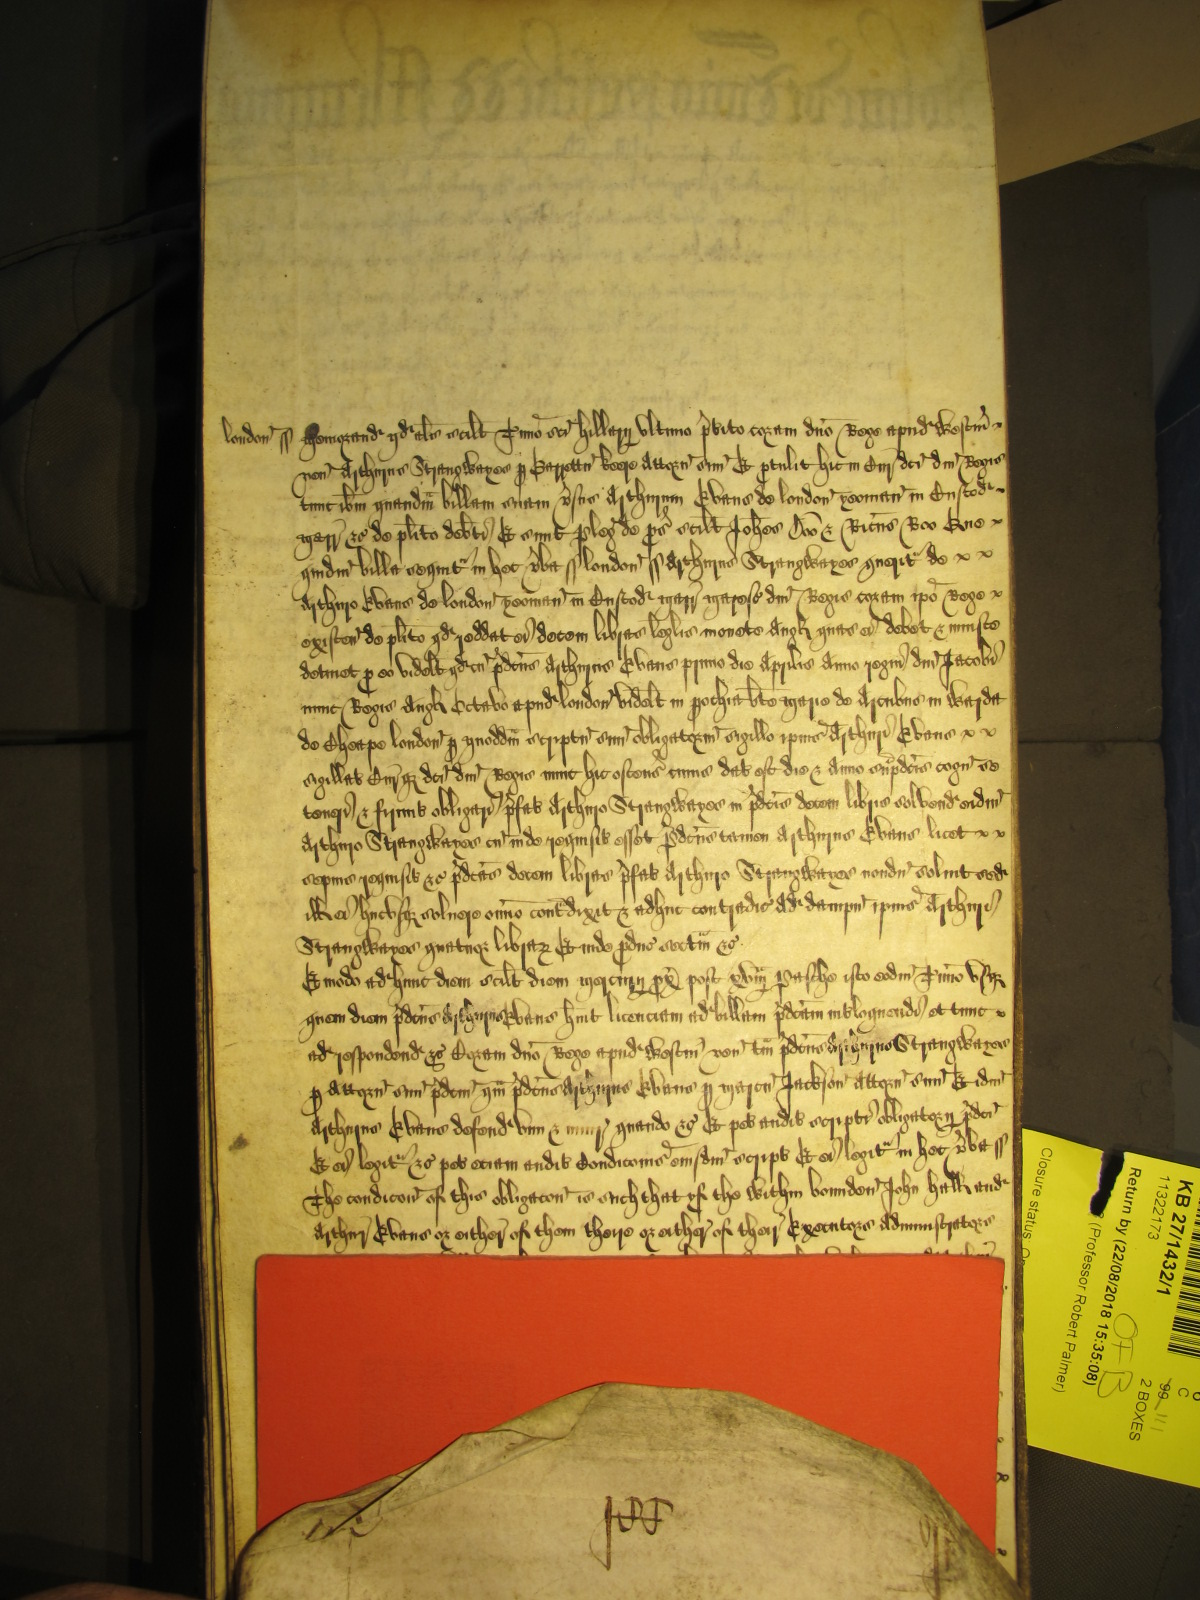 london ss Memorand qd alias scilt Timo sci hillarij ultimo pterito coram dno Rege apud Westm
ven Arthurus Strangwayes p Barrettu keepe Attorn suu Et ptulit hic in Cur dci dni Regis
tunc ibm quandm billam suam vsus Arthurum Evans de london yeoman in Custod
marr &c de plito debti Et sunt pleg de ps scilt Johes Doo & Ricus Roo Que
quidm billa sequit in hec vba ss london ss Arthurus Strangwayes querit de
Arthuro Evans de london yeoman in Custod marr maresc dni Regis coram ipo Rege
existen de plito qd reddat ei decem libras leglis monete Angl quas ei debet & iniuste
detinet p eo videlt qd cu pdcus Arthurus Evans primo die Aprilis Anno regni dni Jacobi
nunc Regis Angl Octavo apud london videlt in pochia bte marie de Arcubus in Warda
de Cheape london p quoddm scriptu suu obligatoru sigillo ipius Arthuri Evans
sigillat Curq dci dni Regis nunc hic ostens cuius dat est die & Anno supdcis cogn se
teneri & firmit obligari pfat Arthuro Strangwayes in pdcis decem libris solvend eidm
Arthuro Strangwayes cu inde requisit esset pdcus tamen Arthurus Evans licet
sepius requisit &c pdcas decem libras pfat Arthuro Strangwayes nondu solvit sed
ill ei hucusq solvere omnio contradixit & adhuc contradic Ad dampn ipius Arthuri
Strangwayes quatuor librar Et inde pduc sectm &c
Et modo ad hunc diem scilt diem mercurij px post xviij Pasche isto eodm Timo usq
quem diem pdcus Arthurus Evans huit licenciam ad billam pdcam intloquendi et tunc
ad respondend &c Coram dno Rege apud Westm ven tm pdcus Arthurus Strangwayes
p Attorn suu pdcm qm pdcus Arthurus Evans p marcu Jackson Attorn suu Et idm
Arthurus Evans defend vim & iniur quando &c Et pet audit scripti obligatorij pdci
Et ei legit &c pet eciam audit Condicois eiusdm script Et ei legit in hec vba ss
The condicon of this obligacon is such that yf the within bounden John hall and
Arthur Evans or either of them theire or either of their Executors Administrators
KB 27/1432/1
11322173
Return by (22/08/2018 15:35:08)
(Professor Robert Palmer)
Closure status: O
C
2 BOXES